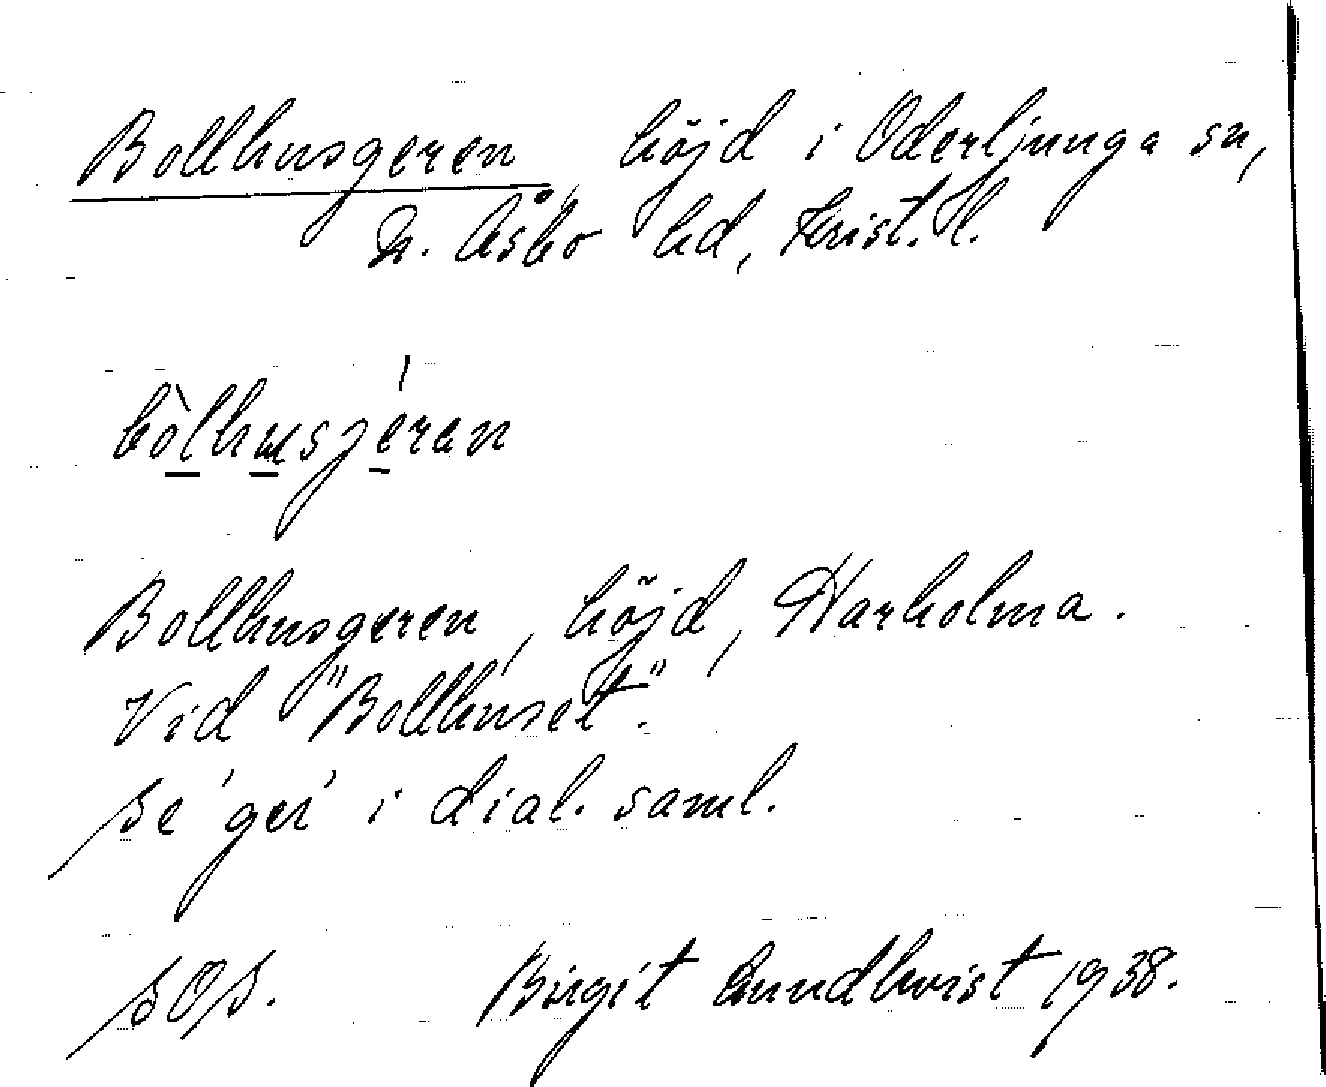 Bollhusgeren, höjd i Oderljunga sn,
N. Åsbo hd, Krist. l.
bòlhusjéran
Bollhusgeren, höjd, Harholma.
Vid "Bollhuset".
Se 'ger' i dial. saml.
SOS. Birgit Lundkvist 1938.